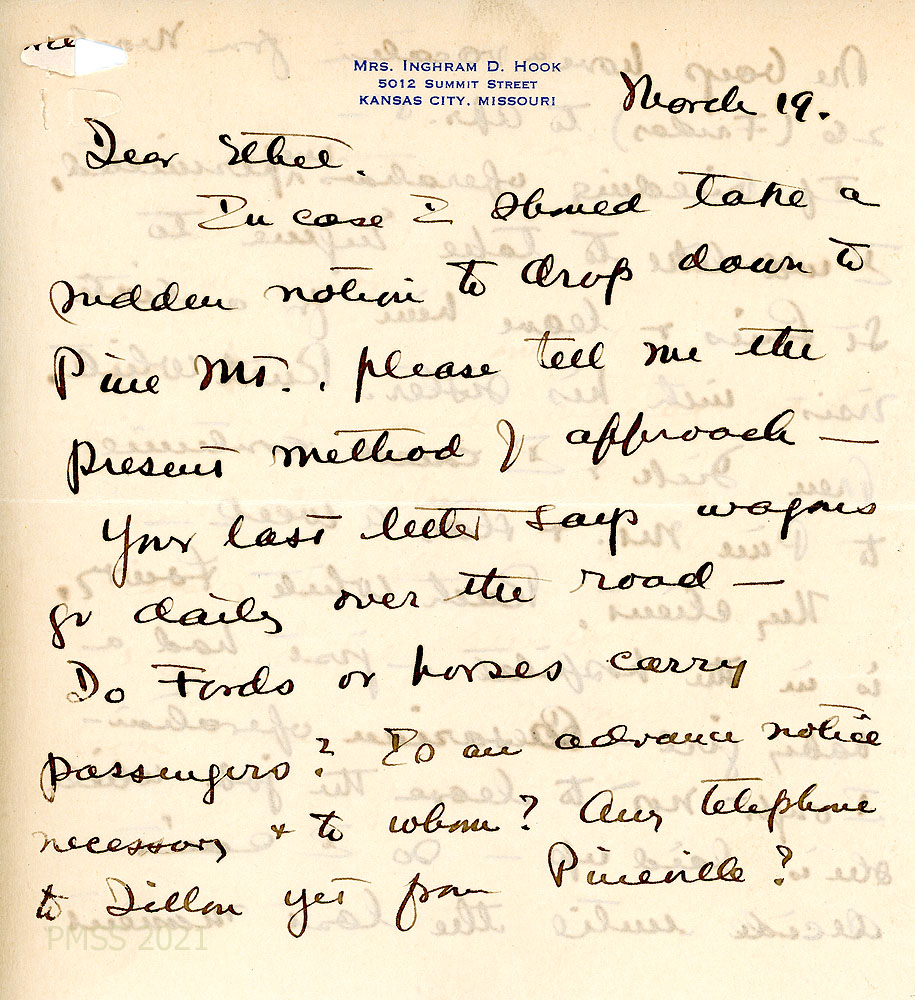 MRS. INGHRAM D. HOOK
5012 SUMMIT STREET
KANSAS CITY, MISSOURI
March 19.
Dear Ethel.
In case I should take a
sudden notion to drop down to
Pine Mt., please tell me the
present method of approach —
Your last letter says wagons
go daily over the road —
Do Fords or horses carry
passengers? Is an advance notice
necessary & to whom? Any telephone
to Dillon yet from Pineville?
PMSS 2021